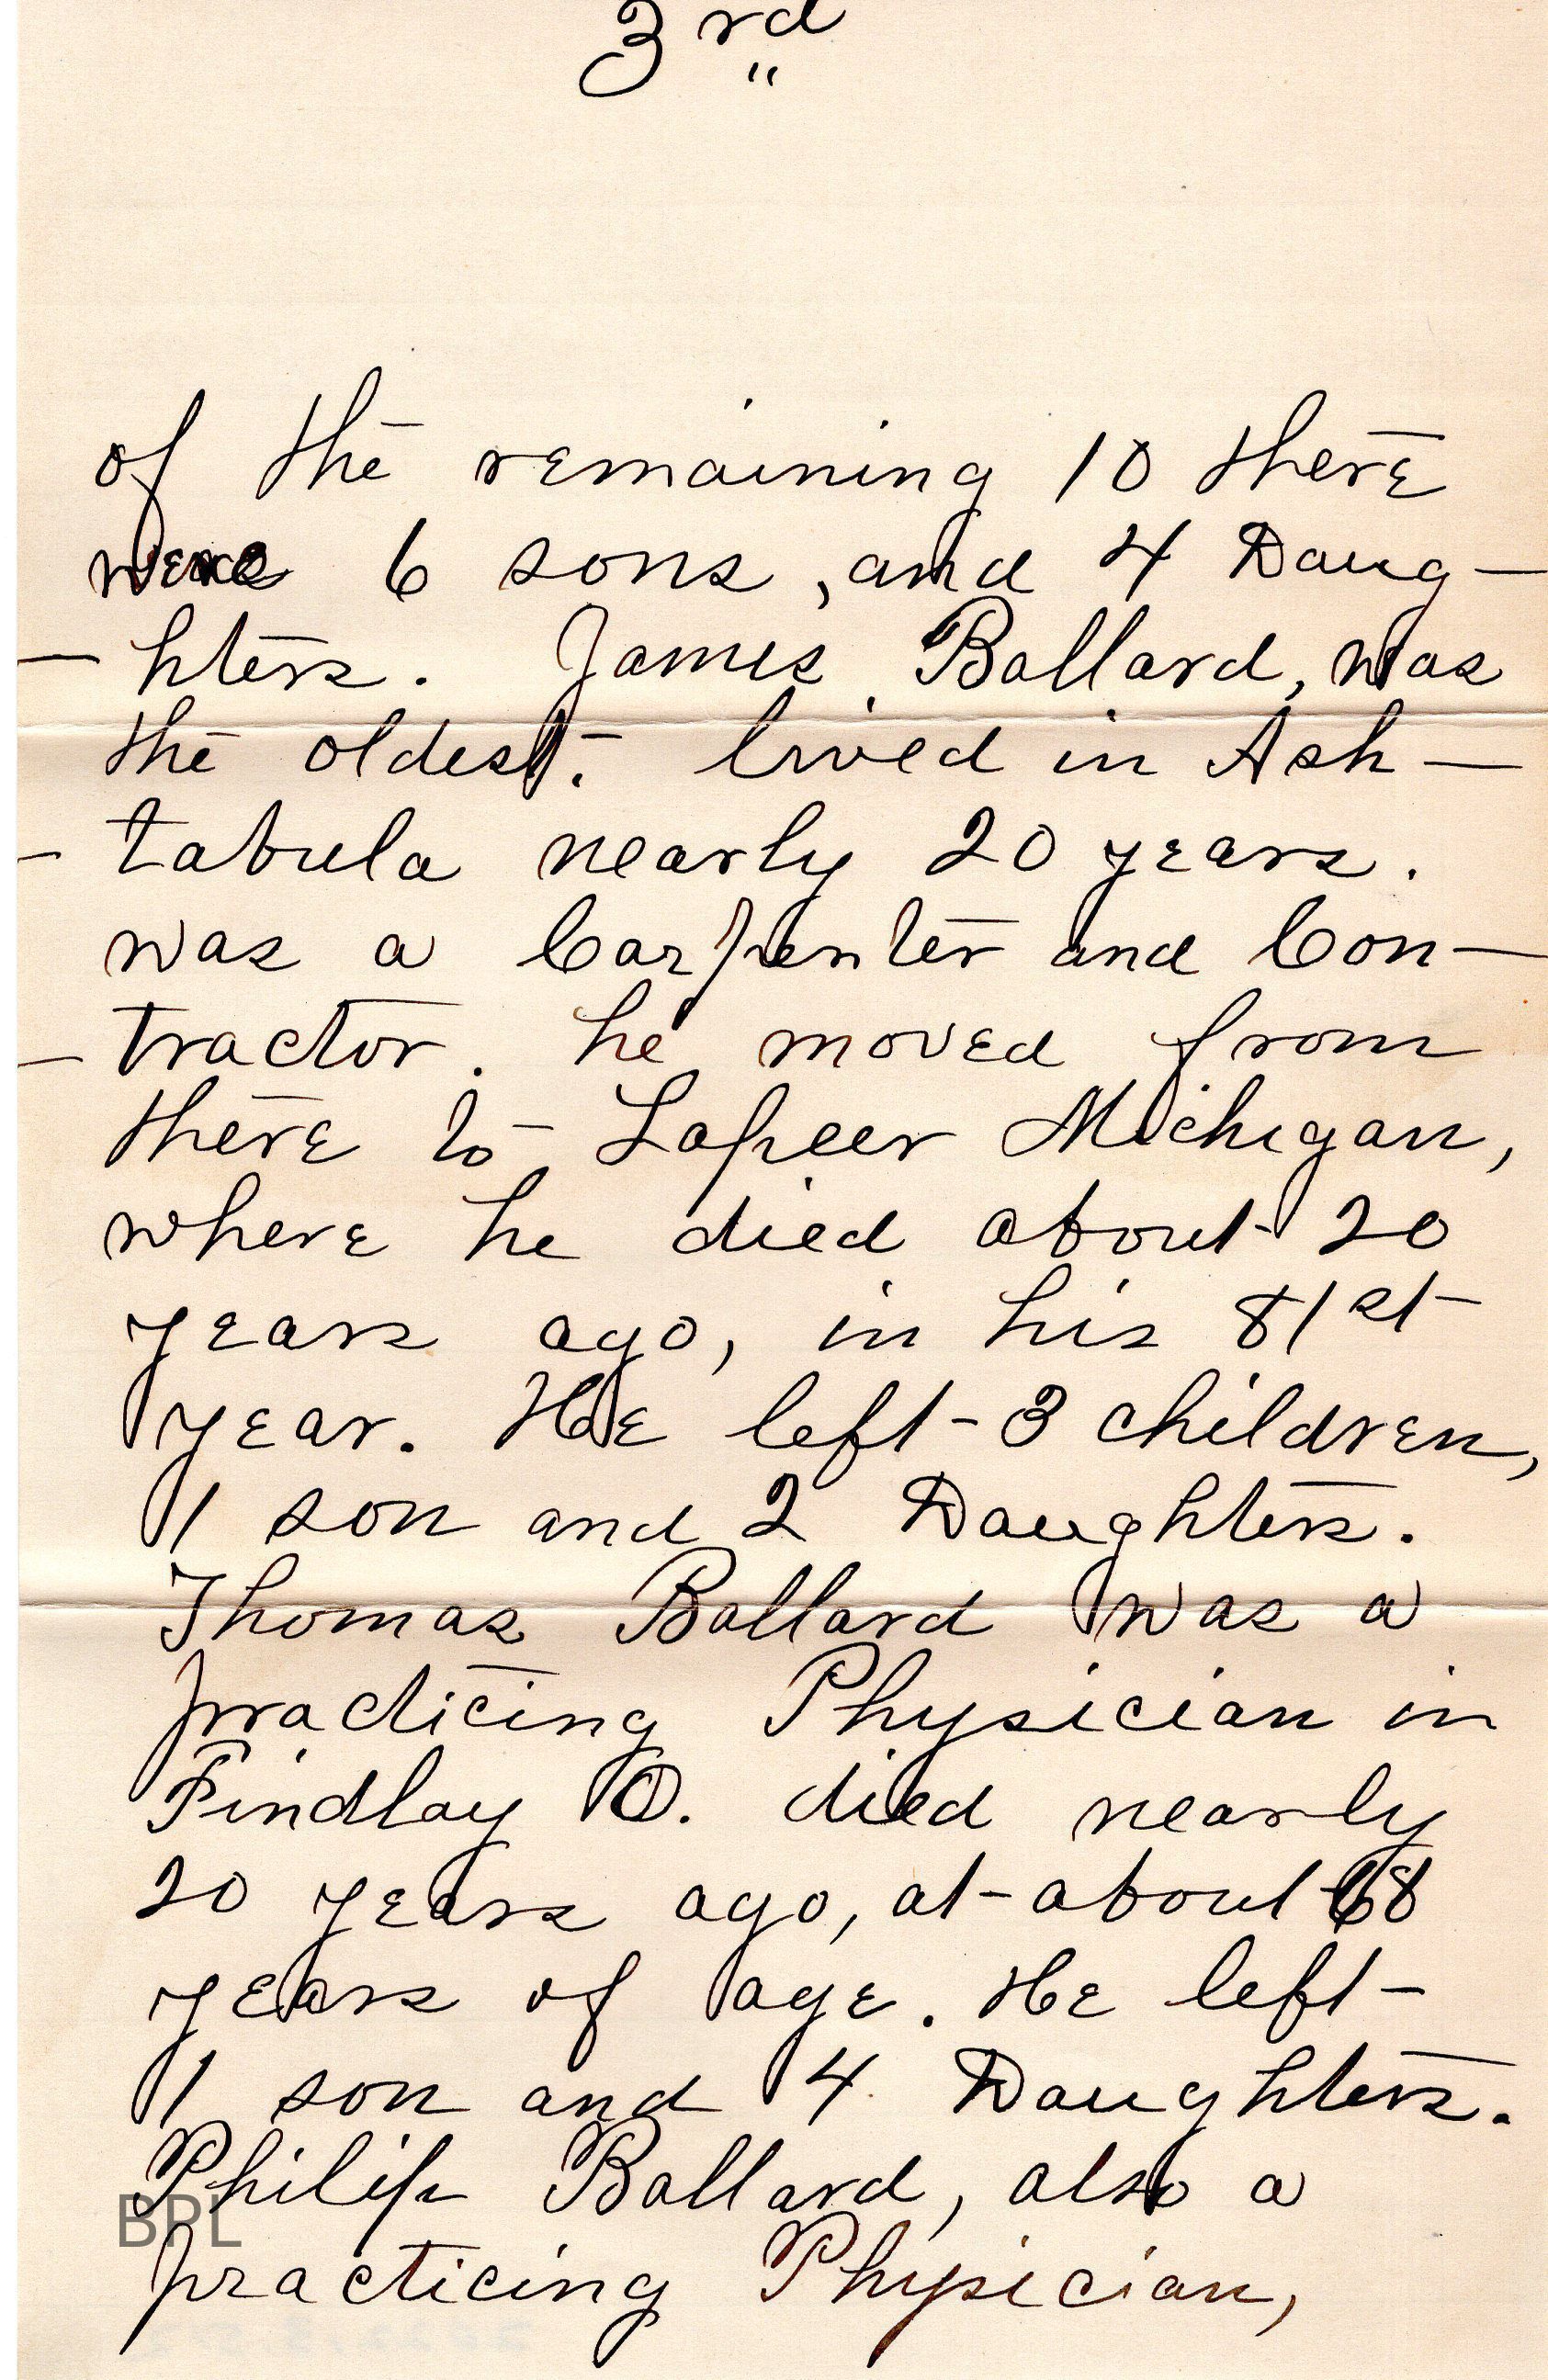 3rd
"
of the remaining 10 there
were 6 sons, and 4 Daug—
— hters. James Ballard, was
the oldest. lived in Ash—
- tabula nearly 20 years.
was a Carpenter and Con—
— tractor. he moved from
there to Lapeer Michigan,
where he died about 20
years ago, in his 81st
year. He left 3 children,
1 son and 2 Daughters.
Thomas Ballard was a
practicing Physician in
Findlay O. died nearly
20 years ago, at about 68
years of age. He left
1 son and 4 Daughters.
Philip Ballard, also a
BPL
practicing Physician,